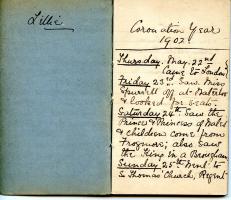 Lilli
Coronation Year
1902
Thursday. May. 22nd
Came to London
Friday 23rd. Saw Miss
Spurrell off at Waterloo
& looked for seats.
Saturday 24th. Saw the
Prince & Princess of Wales
& children come from
Frogmore; also saw
the King in a Brougham
Sunday 25th Went to
S. Thomas' Church, Regent